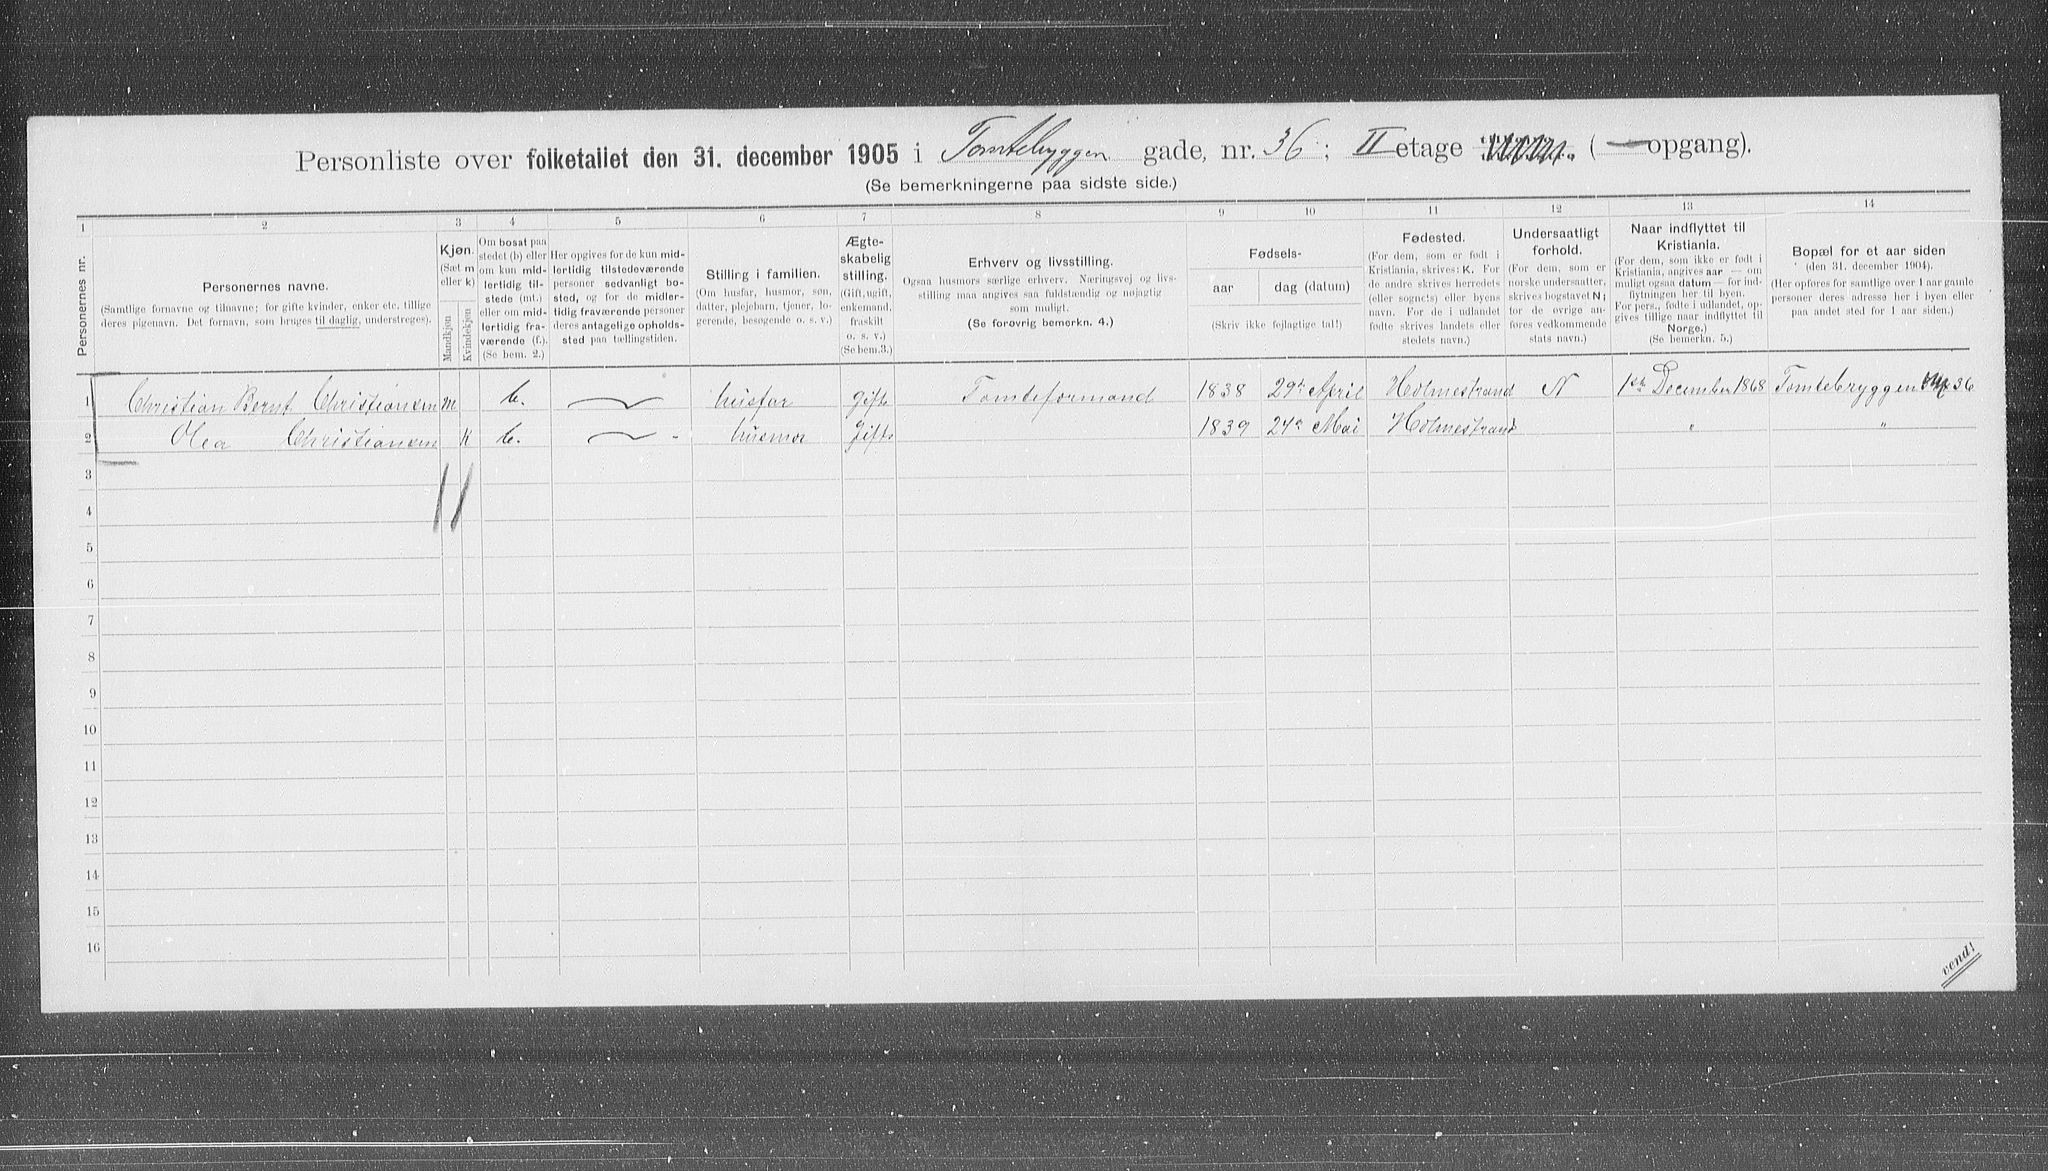 Personliste over folketallet den 31. december 1905 i Tomtebryggen gade, nr. 36; II etage (— opgang).
(Se bemerkningerne paa sidste side.)
1 2 3 4 5 6 7 8 9 10 11 12 13 14
Personernes nr.
Personernes navne.
(Samtlige fornavne og tilnavne; for gifte kvinder, enker etc. tillige
deres pigenavn. Det fornavn, som bruges til daglig, understreges).
Kjøn.
(Sæt m
eller k)
Mandkjøn
Kvindekjøn
Om bosat paa
stedet (b) eller
om kun mid-
lertidig til-
stede (mt.)
eller om mid-
lertidig fra-
værende (f.).
(Se bem. 2.)
Her opgives for de kun mid-
lertidig tilstedeværende
personer sedvanligt bo-
sted, og for de midler-
tidig fraværende personer
deres antagelige opholds-
sted paa tællingstiden.
Stilling i familien.
(Om husfar, husmor, søn,
datter, plejebarn, tjener, lo-
gerende, besøgende o. s. v.)
Ægte-
skabelig
stilling.
(Gift, ugift,
enkemand,
fraskilt
o. s. v.)
(Se bem. 3.)
Erhverv og livsstilling.
Ogsaa husmors særlige erhverv. Næringsvej og livs-
stilling maa angives saa fuldstændig og nøjagtig
som muligt.
(Se forøvrig bemerkn. 4.)
Fødsels-
aar
dag (datum)
(Skriv ikke fejlagtige tal!)
Fødested.
(For dem, som er født i
Kristiania, skrives: K. For
de andre skrives herredets
(eller sognets) eller byens
navn. For de i udlandet
fødte skrives landets eller
stedets navn.)
Undersaatligt
forhold.
(For dem, som er
norske undersaatter,
skrives bogstavet N;
for de øvrige an-
føres vedkommende
stats navn.)
Naar indflyttet til
Kristiania.
(For dem, som ikke er født i
Kristiania, angives aar — om
muligt ogsaa datum — for ind-
flytningen her til byen.
For pers., fødte i udlandet, op-
gives tillige naar indflyttet til
Norge.)
(Se bemerkn. 5.)
Bopæl for et aar siden
(den 31. december 1904).
(Her opføres for samtlige over 1 aar gamle
personer deres adresse her i byen eller
paa andet sted for 1 aar siden.)
1 Christian Bernt Christiansen m b. husfar gift Tomteformand 1838 29de April Holmestrand N 1ste December 1868 Tomtebryggen 36
2 Olea Christiansen k b. - husmor Gift 1839 24de Mai Holmestrand " "
3
4
5
6
7
8
9
10
11
12
13
14
15
16
vend!